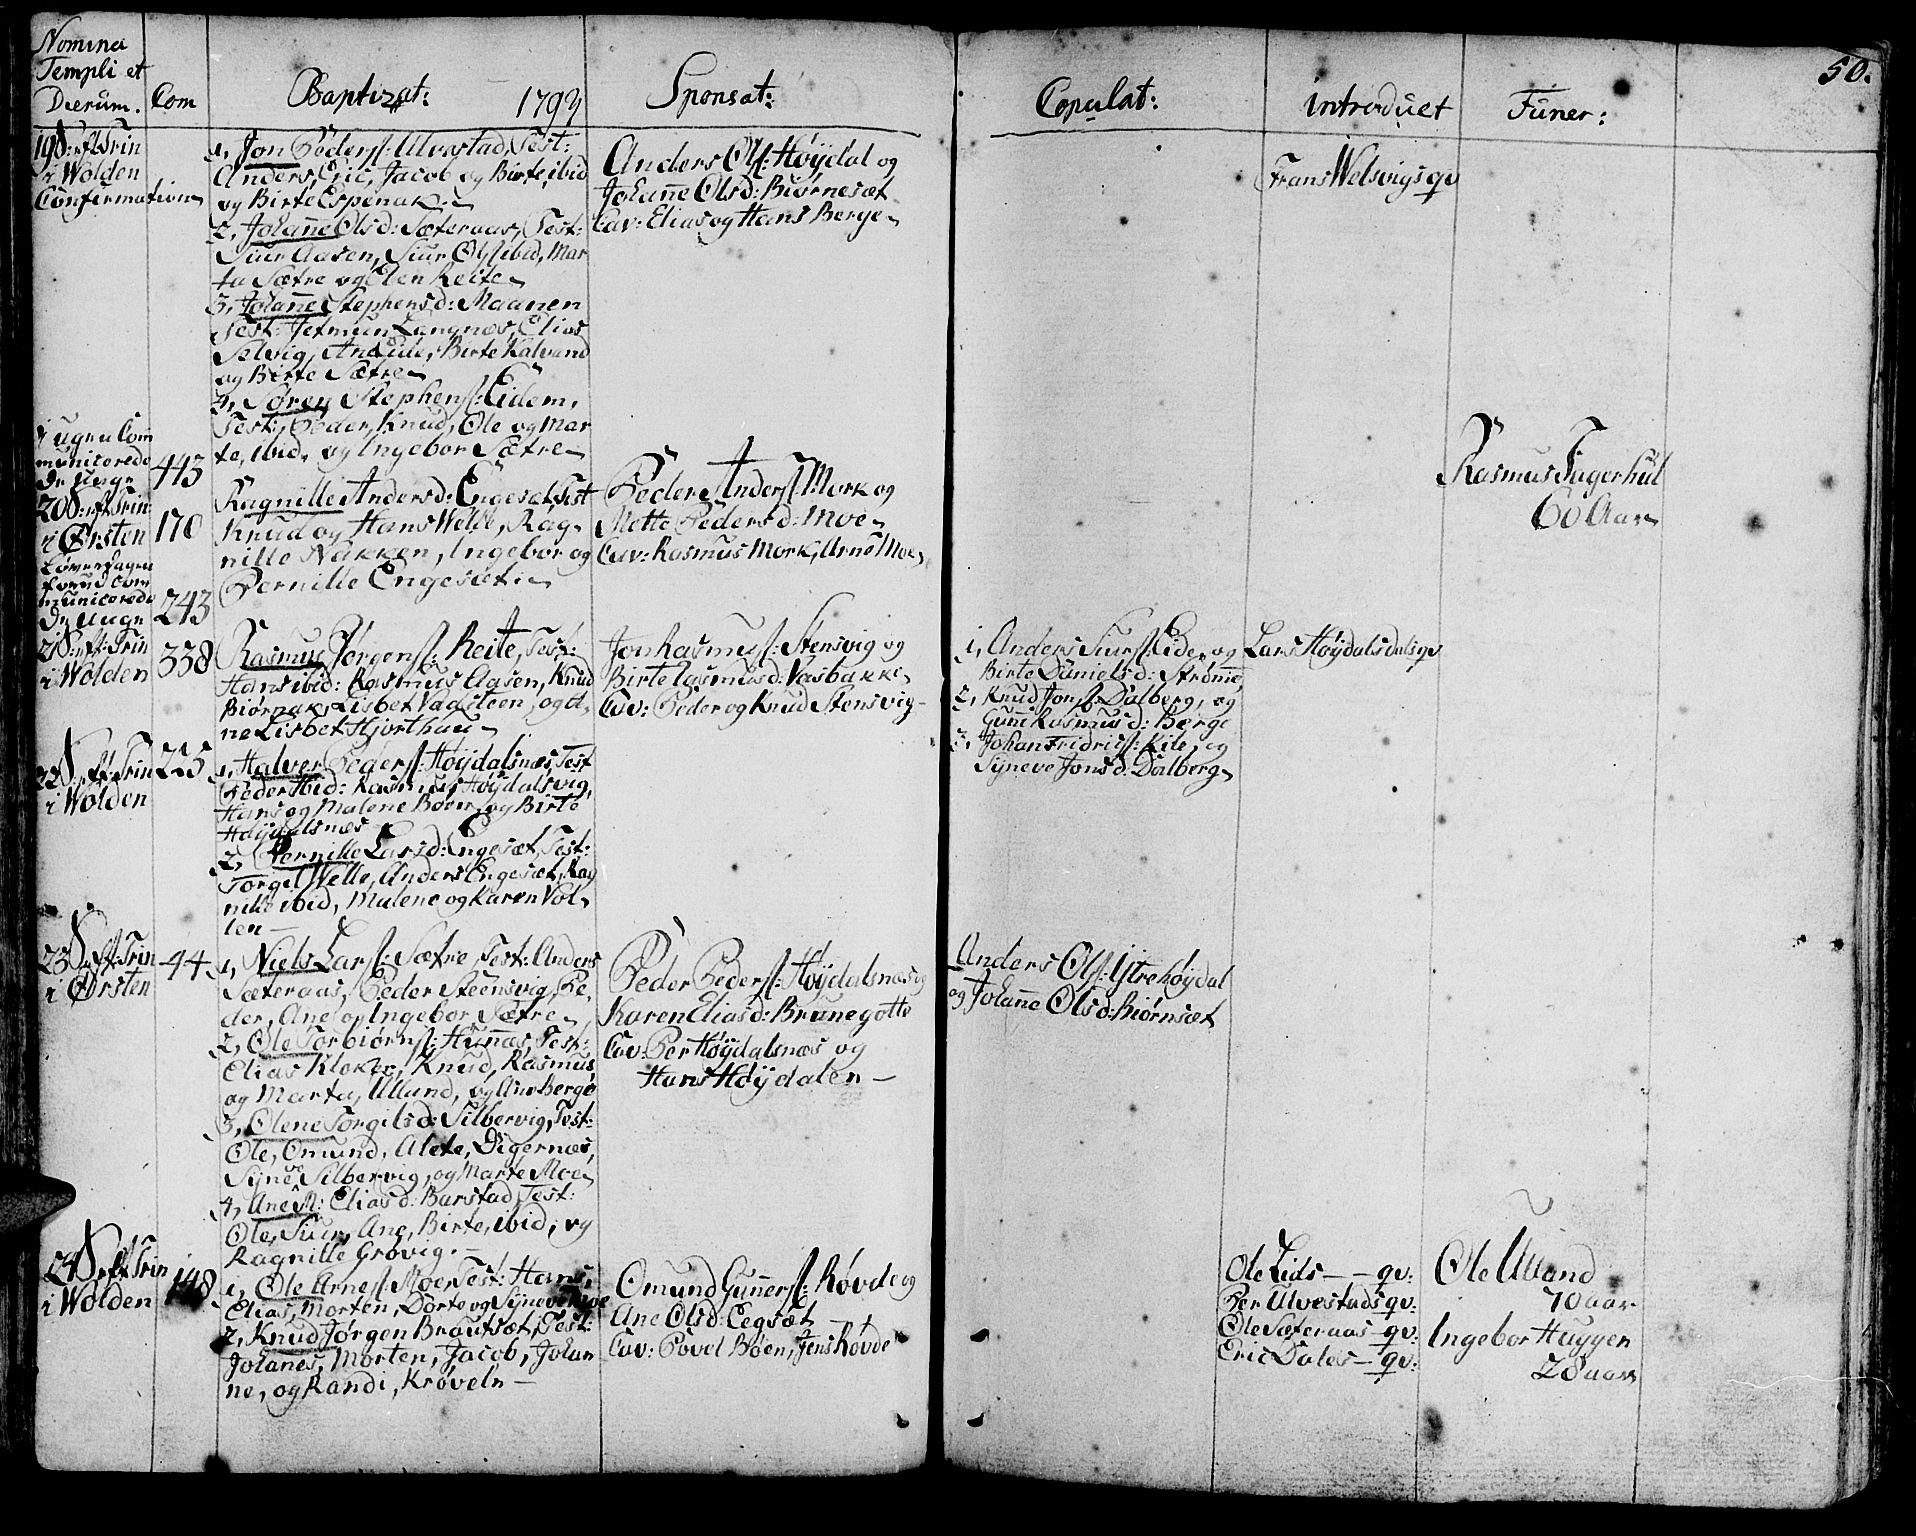 Nomina
Templi et
Dierum.
Com
Baptizat: 1793
Sponsat:
Copulat:
introduct
Funer:
50.
19 S: eft: Trin
i Wolden
Confirmation
1, Jon Peders: Ulvestad, Test:
Anders, Eric, Jacob og Birte ibid
og Birte Espenak.
2, Johanne Olsd: Sæteraas, Test:
Siur Aasen, Siur Ols ibid, Mar
ta Sætre og Elen Reite
3, Johanne Stephensd: Maanen
Test: Jetmun Langnæs, Elias
Selvig, An Eide, Birte Kalvand
og Birte Sætre
4, Søren Stephens: Eidem,
Test: Peder, Knud, Ole og Mar
te, ibid, og Ingebor Sætre
Anders Ols: Høydal og
Johanne Olsd: Biørnesæt
Cav: Elias og Hans Berge
Frans Welsvigs qv
i Ugen Com
municerede
De Unge
443
20 S: eft: Trin:
i Ørsten
170
Ragnille Andersd: Engesæt, Test
Knud og Hans Welle, Rag
nille Nakken, Ingebor og
Pernille Engesæt
Peder Anders: Mork og
Mette Pedersd: Moe
Cav: Rasmus Mork, Arne Moe
Rasmus Fagerhul
60 Aar
Løverdagen
forud com
municerede
De Unge
243
21 S: eft: Trin
i Wolden
338
Rasmus Jørgens: Reite, Test:
Hans ibid: Rasmus Aasen, Knud
Biørnak, Lisbet Vadsteen, og A,
ne Lisbet Hjorthaug
Jon Rasmus: Stensvig og
Birte Rasmusd: Vasbakke
Cav: Peder og Knud Stensvig
1, Anders Siurs: Eide, og
Birte Danielsd: Strømme,
2, Knud Jons: Dalberg, og
Gune Rasmusd: Berge
3, Johan Fridrics: Kile, og
Syneve Jonsd: Dalberg
Lars Høydalsdals qv
22 S: eft: Trin
i Wolden
225
1, Halver Peders: Høydalsnæs, Test
Peder ibid: Rasmus Høydalsvig,
Hans og Malene Bøen, og Birte
Høydalsnæs
2, Pernille Larsd: Engesæt, Test:
Torgel Welle, Anders Engesæt, Rag
nille ibid, Malene og Karen Vol
len
23 S: eft: Trin
i Ørsten
44
1, Niels Lars: Sætre, Test: Anders
Sæteraas, Peder Steensvig, Pe
der, Ane og Ingebor Sætre
2, Ole Torbiørns: Hunnæs, Test:
Elias Kloker, Knud, Rasmus,
og Marta, Ulland, og Ane Berge
3, Olene Torgilsd: Silbervig, Test:
Ole, Omund, Alete, Digernæs,
Syneve, Silbervig, og Marte Moe
4, Ane M: Eliasd: Barstad, Test:
Ole, Siur, Ane, Birte, ibid, og
Ragnille Grøvig.
Peder Peders: Høydalsnæs og
Karen Eliasd: Brunegotte
Cav: Per Høydalsnæs og
Hans Høydalen
Anders Ols: Ytrehøydal
og Johanne Olsd: Biørnsæt
24 S: eft: Trin
i Wolden
148
1, Ole Arnes: Moe, Test: Hans,
Elias, Morten, Dorte og Syneve Moe
2, Knud Jørgen Brautsæt, Test:
Johanes, Morten, Jacob, Johan
ne, og Randi, Krøveln
Omund Guners: Røvde og
Ane Olsd: Eegsæt
Cav: Povel Bøen, Jens Røvde
Ole Lids qv:
Per Ulvestads qv:
Ole Sæteraas qv:
Eric Dales qv:
Ole Ulland
70 aar
Ingebor Huggen
28 aar